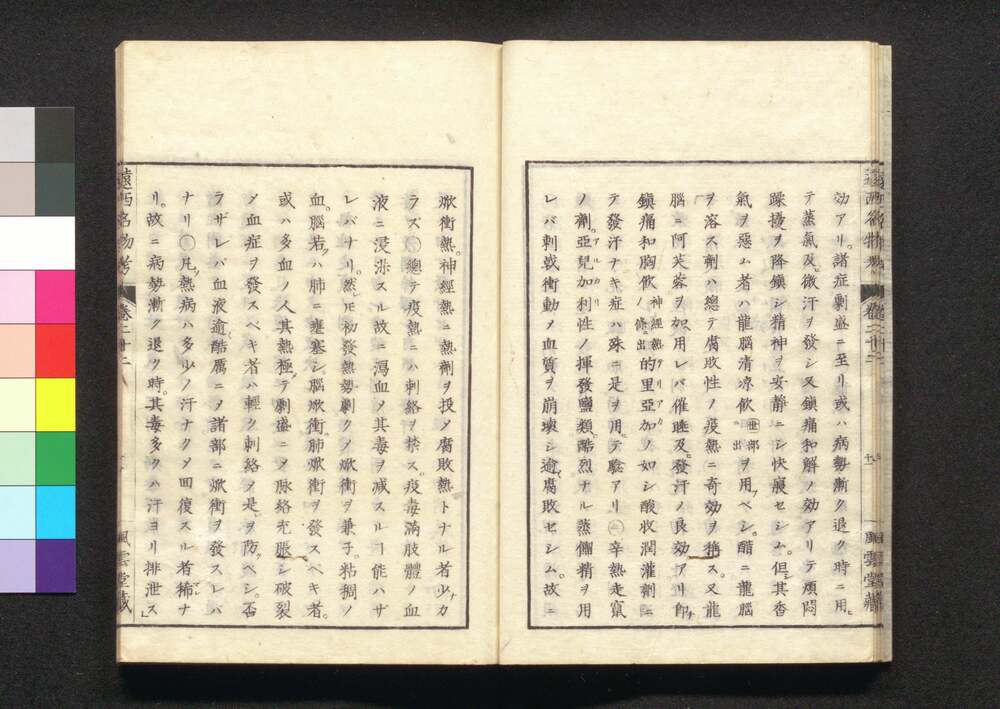 効アリ。諸症劇盛ニ至リ或ハ病勢漸ク退ク時ニ用
テ蒸氣及微汗ヲ發シ又鎮痛和解ノ効アリテ煩悶
躁擾ヲ降鎮シ精神ヲ安靜ニシ快寢セシム。但其香
氣ヲ惡ム者ハ龍腦清凉飲世部出ヲ用ベシ。醋ニ龍腦
ヲ溶ス劑ハ總テ腐敗性ノ疫熱ニ奇効ヲ稱ス。又龍
腦ニ阿芙蓉ヲ加用レバ催睡及發汗ノ良効アリ即
鎮痛和胸飲神經熱ノ條出的里亞加ノ如シ酸收潤灌劑ニ
テ發汗ナキ症ハ殊ニ是ヲ用テ驗アリ㊁辛熱走竄
ノ劑。亞兒加利性ノ揮發鹽類。酷烈ナル蒸餾精ヲ用
レバ刺戟衝動メ血質ヲ崩壞シ逾腐敗セシム。故ニ
焮衝熱。神經熱ニ熱劑ヲ投メ腐敗熱トナル者少カ
ラズ㊂總テ疫熱ニハ刺絡ヲ禁ス。疫毒滿肢體ノ血
液ニ浸染スル故ニ瀉血メ其毒ヲ减スルヿ能ハザ
レバナリ。然𪜈初發熱勢劇クメ焮衝ヲ兼子。粘稠ノ
血。腦若ハ肺ニ壅塞シ腦焮衝。肺焮衝ヲ發スベキ者。
或ハ多血ノ人其熱極テ劇盛ニメ脉絡充脹シ破裂
メ血症ヲ發スベキ者ハ輕ク刺絡メ是ヲ防ベシ。否
ラザレバ血液逾酷厲ニメ諸部ニ焮衝ヲ發スレバ
ナリ㊃凡熱病ハ多少ノ汗ナクメ回復スル者稀ナ
リ。故ニ病勢漸ク退ク時。其毒多クハ汗ヨリ排泄ス
遠西名物考
卷二十二
風雲堂藏